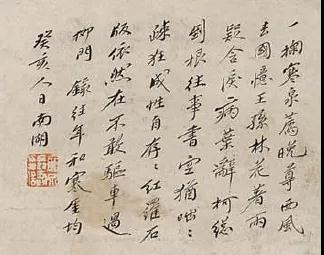 一掬寒泉薦晚尊西風
去國憶王孫林花著雨
疑含淚病葉辭柯總
到根往事書空猶咄咄
疎狂成性自存存紅羅石
版依然在不敢驅車過
柳門 錄往年和寒厓均
癸亥人日南湖